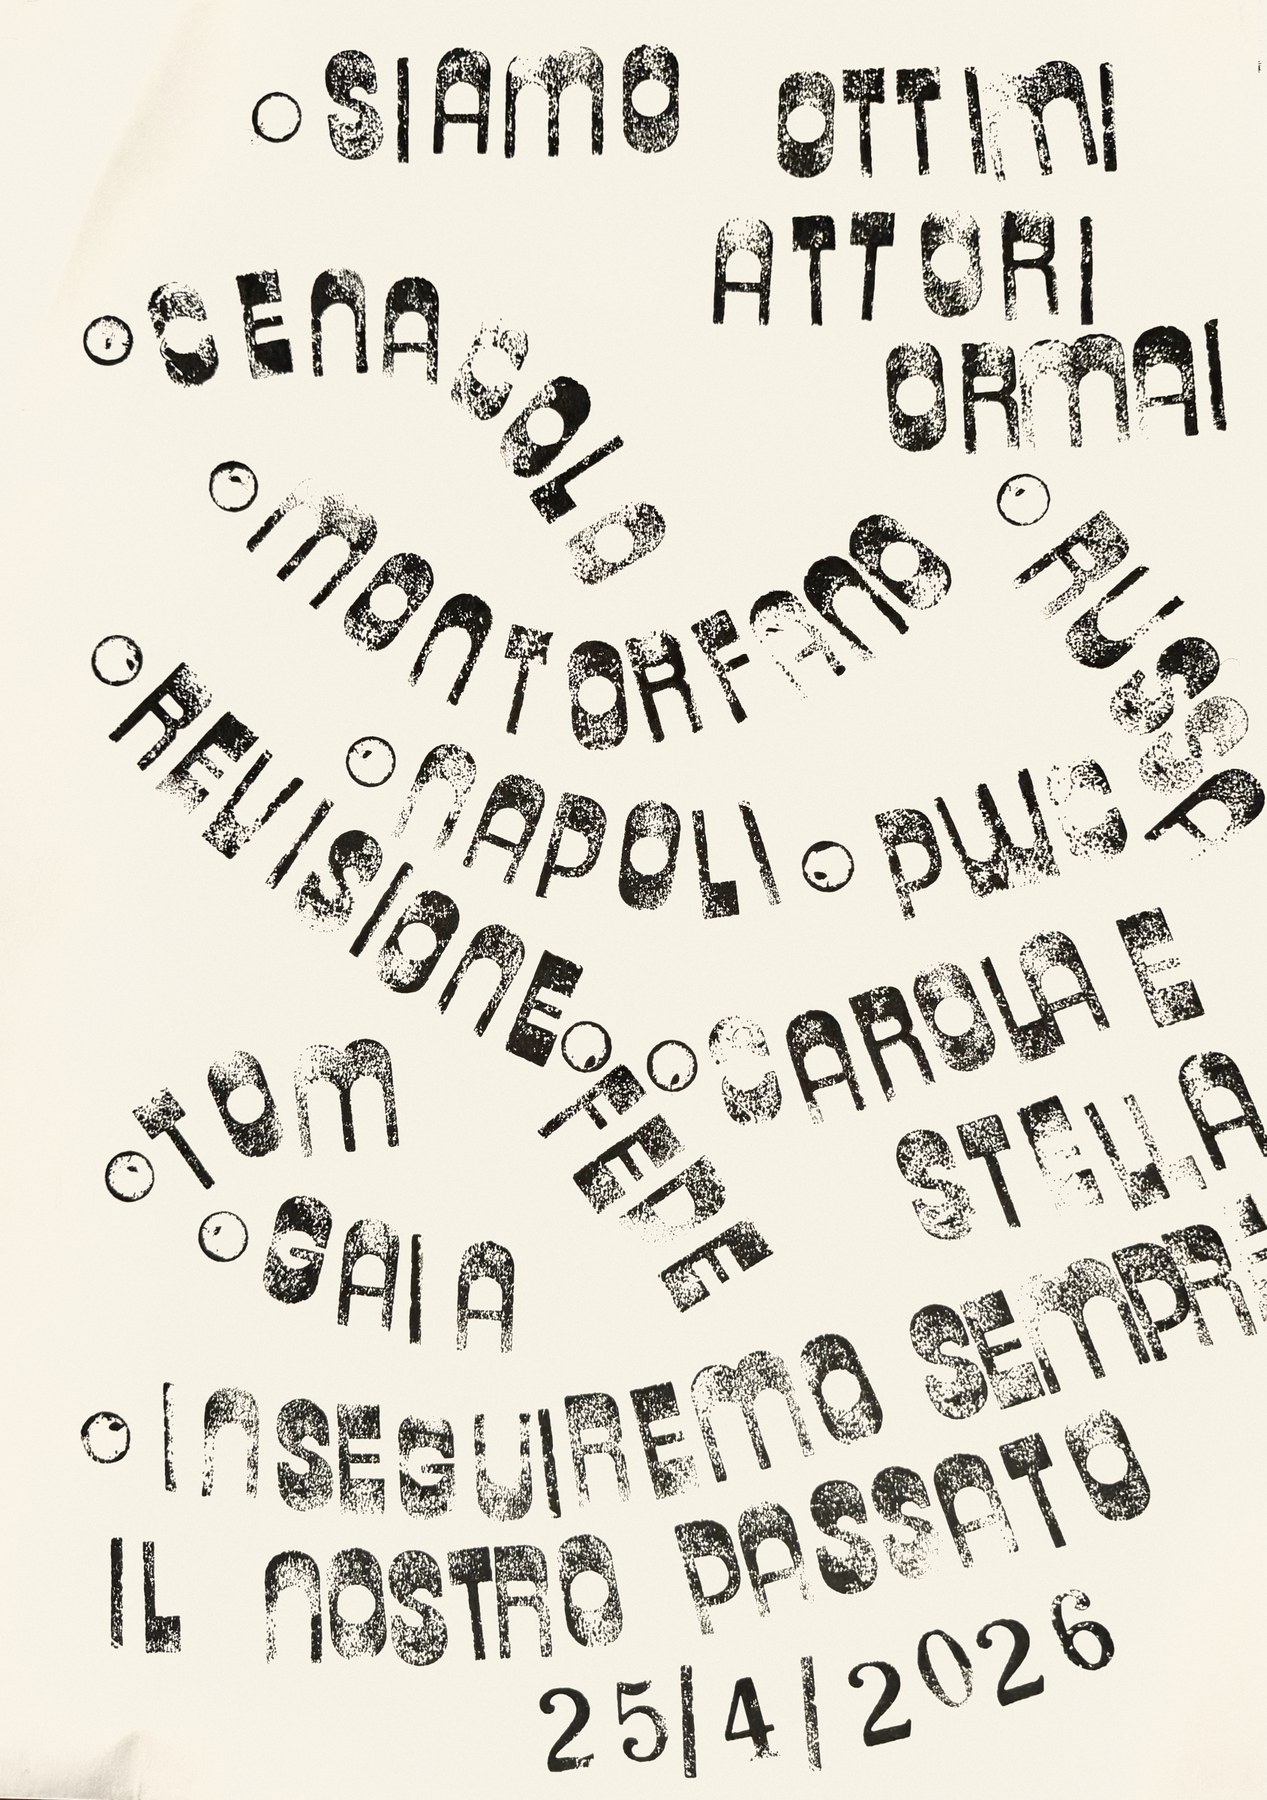 SIAMO OTTIMI
ATTORI
ORMAI
CENACOLO
MONTORFANO
RUSSA
REVISIONE
NAPOLI
PWC
FEDE
CAROLA E
STELLA
TOM
GAIA
INSEGUIREMO SEMPRE
IL NOSTRO PASSATO
25/4/2026